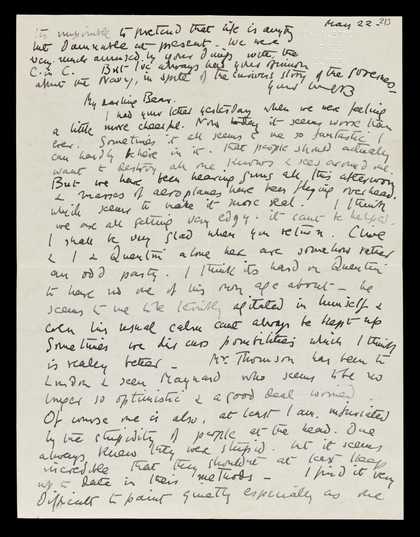 May 22
its impossible to pretend that life is anything
but damnable at present. We were
very much amused by your doings with the
C. in C. But I've always had your opinion
about the Navy, in spite of the curious story of the
Your
My darling Bear.
I had your letter yesterday when we were feeling
a little more cheerful. Now today it seems worse than
ever. Sometimes it all seems to me so fantastic I
can hardly believe in it - that people should actually
want to destroy all one knows & sees around one.
But we have been hearing guns all this afternoon
& masses of aeroplanes have been flying overhead.
which seems to make it more real. I think
we are all getting very edgy - it cant be helped.
I shall be very glad when you return. Clive
& I & Quentin alone here are somehow rather
an odd party. I think its hard on Quentin
to have no one of his own age about - he
seems to me to be terribly agitated in himself &
even his usual calm cant always be kept up
Sometimes we discuss possibilities which I think
is really better - Mr. Thomson has been to
London & seen Maynard who seems to be no
longer so optimistic & a good deal worried.
Of course one is also, at least I am, infuriated
by the stupidity of people at the head. One
always knew they were stupid. but it seems
incredible that they shouldnt at least keep
up to date in their methods - I find it very
difficult to paint quietly especially as one